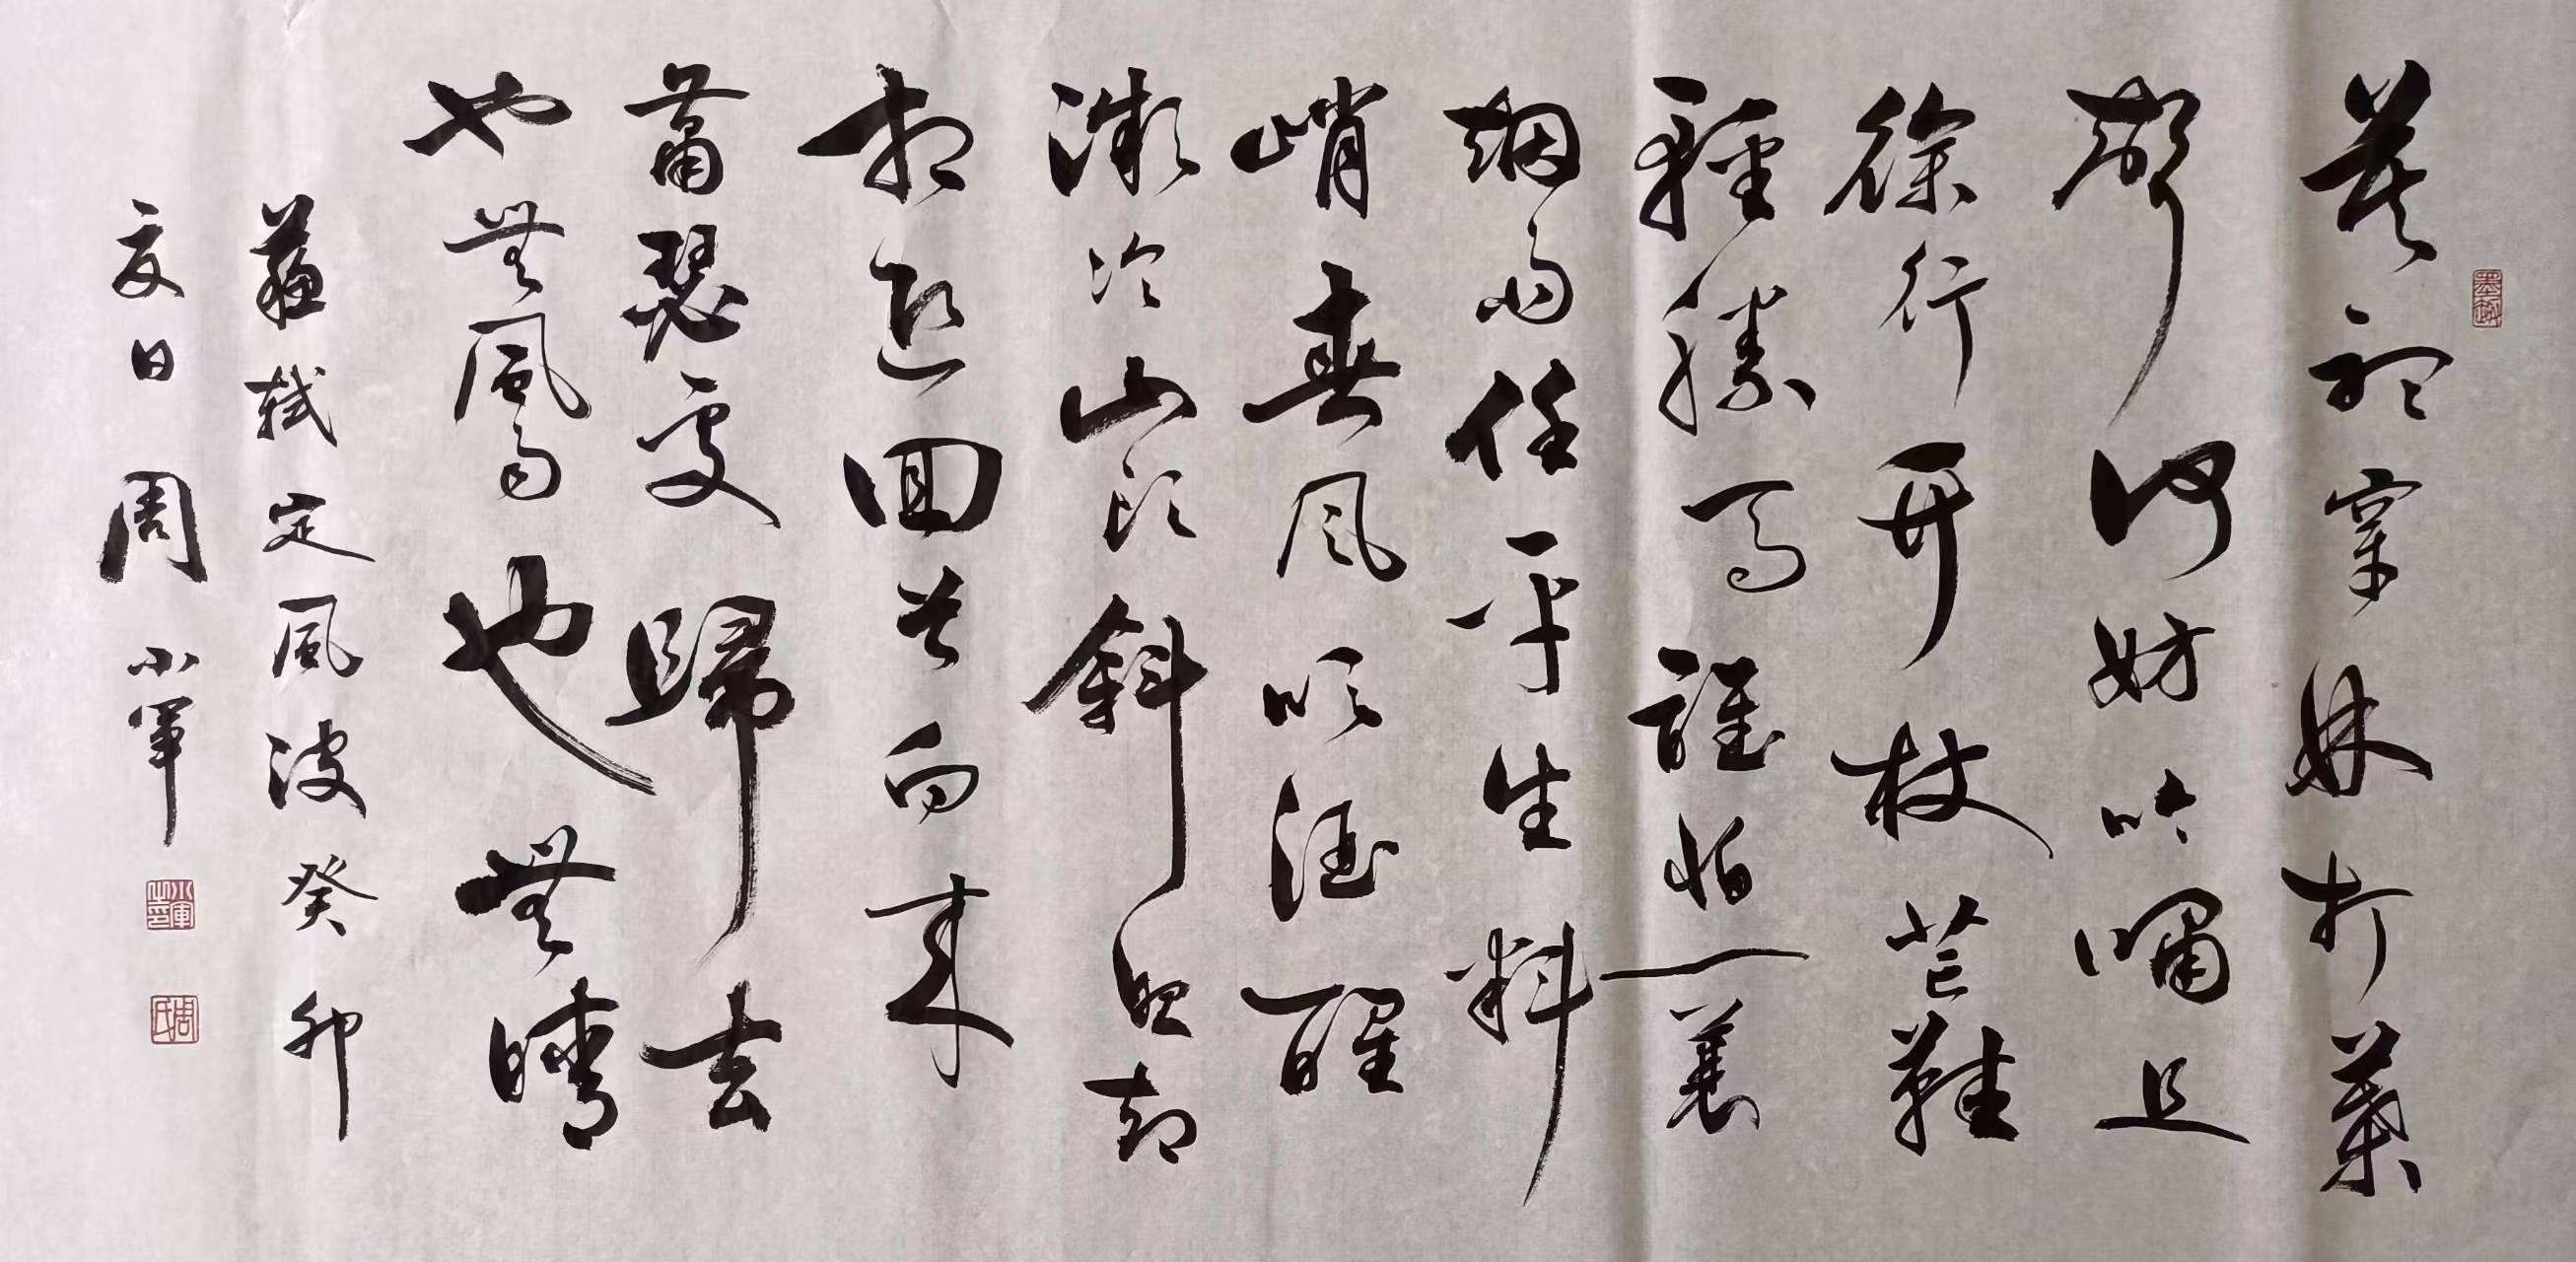 莫聽穿林打葉
聲何妨吟嘯且
徐行竹杖芒鞋
輕勝馬誰怕一蓑
烟雨任平生料
峭春风吹酒醒
微冷山頭斜照却
相迎回首向來
蕭瑟處歸去
也無風雨也無晴
蘇軾定風波癸卯
夏日周小軍
小軍之印
周氏